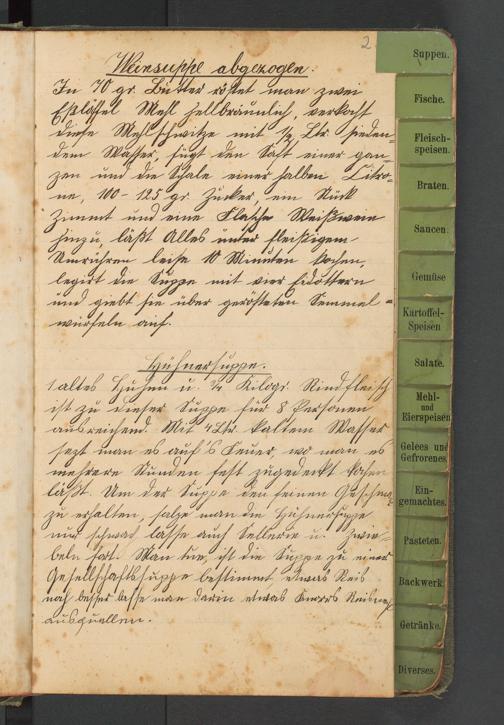 2
Weinsuppe abgezogen.
In 70 gr. Butter röstet man zwei
Eßlöffel Mehl hellbräunlich, verkocht
diese Mehlschwitze mit ½ Ltr. sieden-
dem Wasser, fügt den Saft einer gan-
zen und die Schale einer halben Citro-
ne, 100-125 gr. Zucker, ein Stück
Zimmt und eine Flasche Weißwein
hinzu, läßt Alles unter fleißigem
Umrühren leise 10 Minuten kochen,
legirt die Suppe mit vier Eidottern
und giebt sie über gerösteten Semmel=
würfeln auf.
Hühnersuppe.
1 altes Huhn u. ¾ Kilogr. Rindfleisch
ist zu dieser Suppe für 8 Personen
ausreichend. Mit 4 Ltr. kaltem Wasser
setzt man es auf's Feuer, wo man es
mehrere Stunden fest zugedeckt kochen
läßt. Um der Suppe den feinen Geschmack
zu erhalten, salze man die Hühnersuppe
nur schwach, lasse auch Sellerie u. Zwie-
beln fort. Man thue, ist die Suppe zu einer
Gesellschaftssuppe bestimmt, etwas Reis
noch besser lasse man darin etwas
ausquellen.
Suppen.
Fische.
Fleisch-
speisen.
Braten.
Saucen.
Gemüse
Kartoffel-
Speisen
Salate.
Mehl-
und
Eierspeisen
Gelees und
Gefrorenes.
Ein-
gemachtes.
Pasteten.
Backwerk.
Getränke.
Diverses.